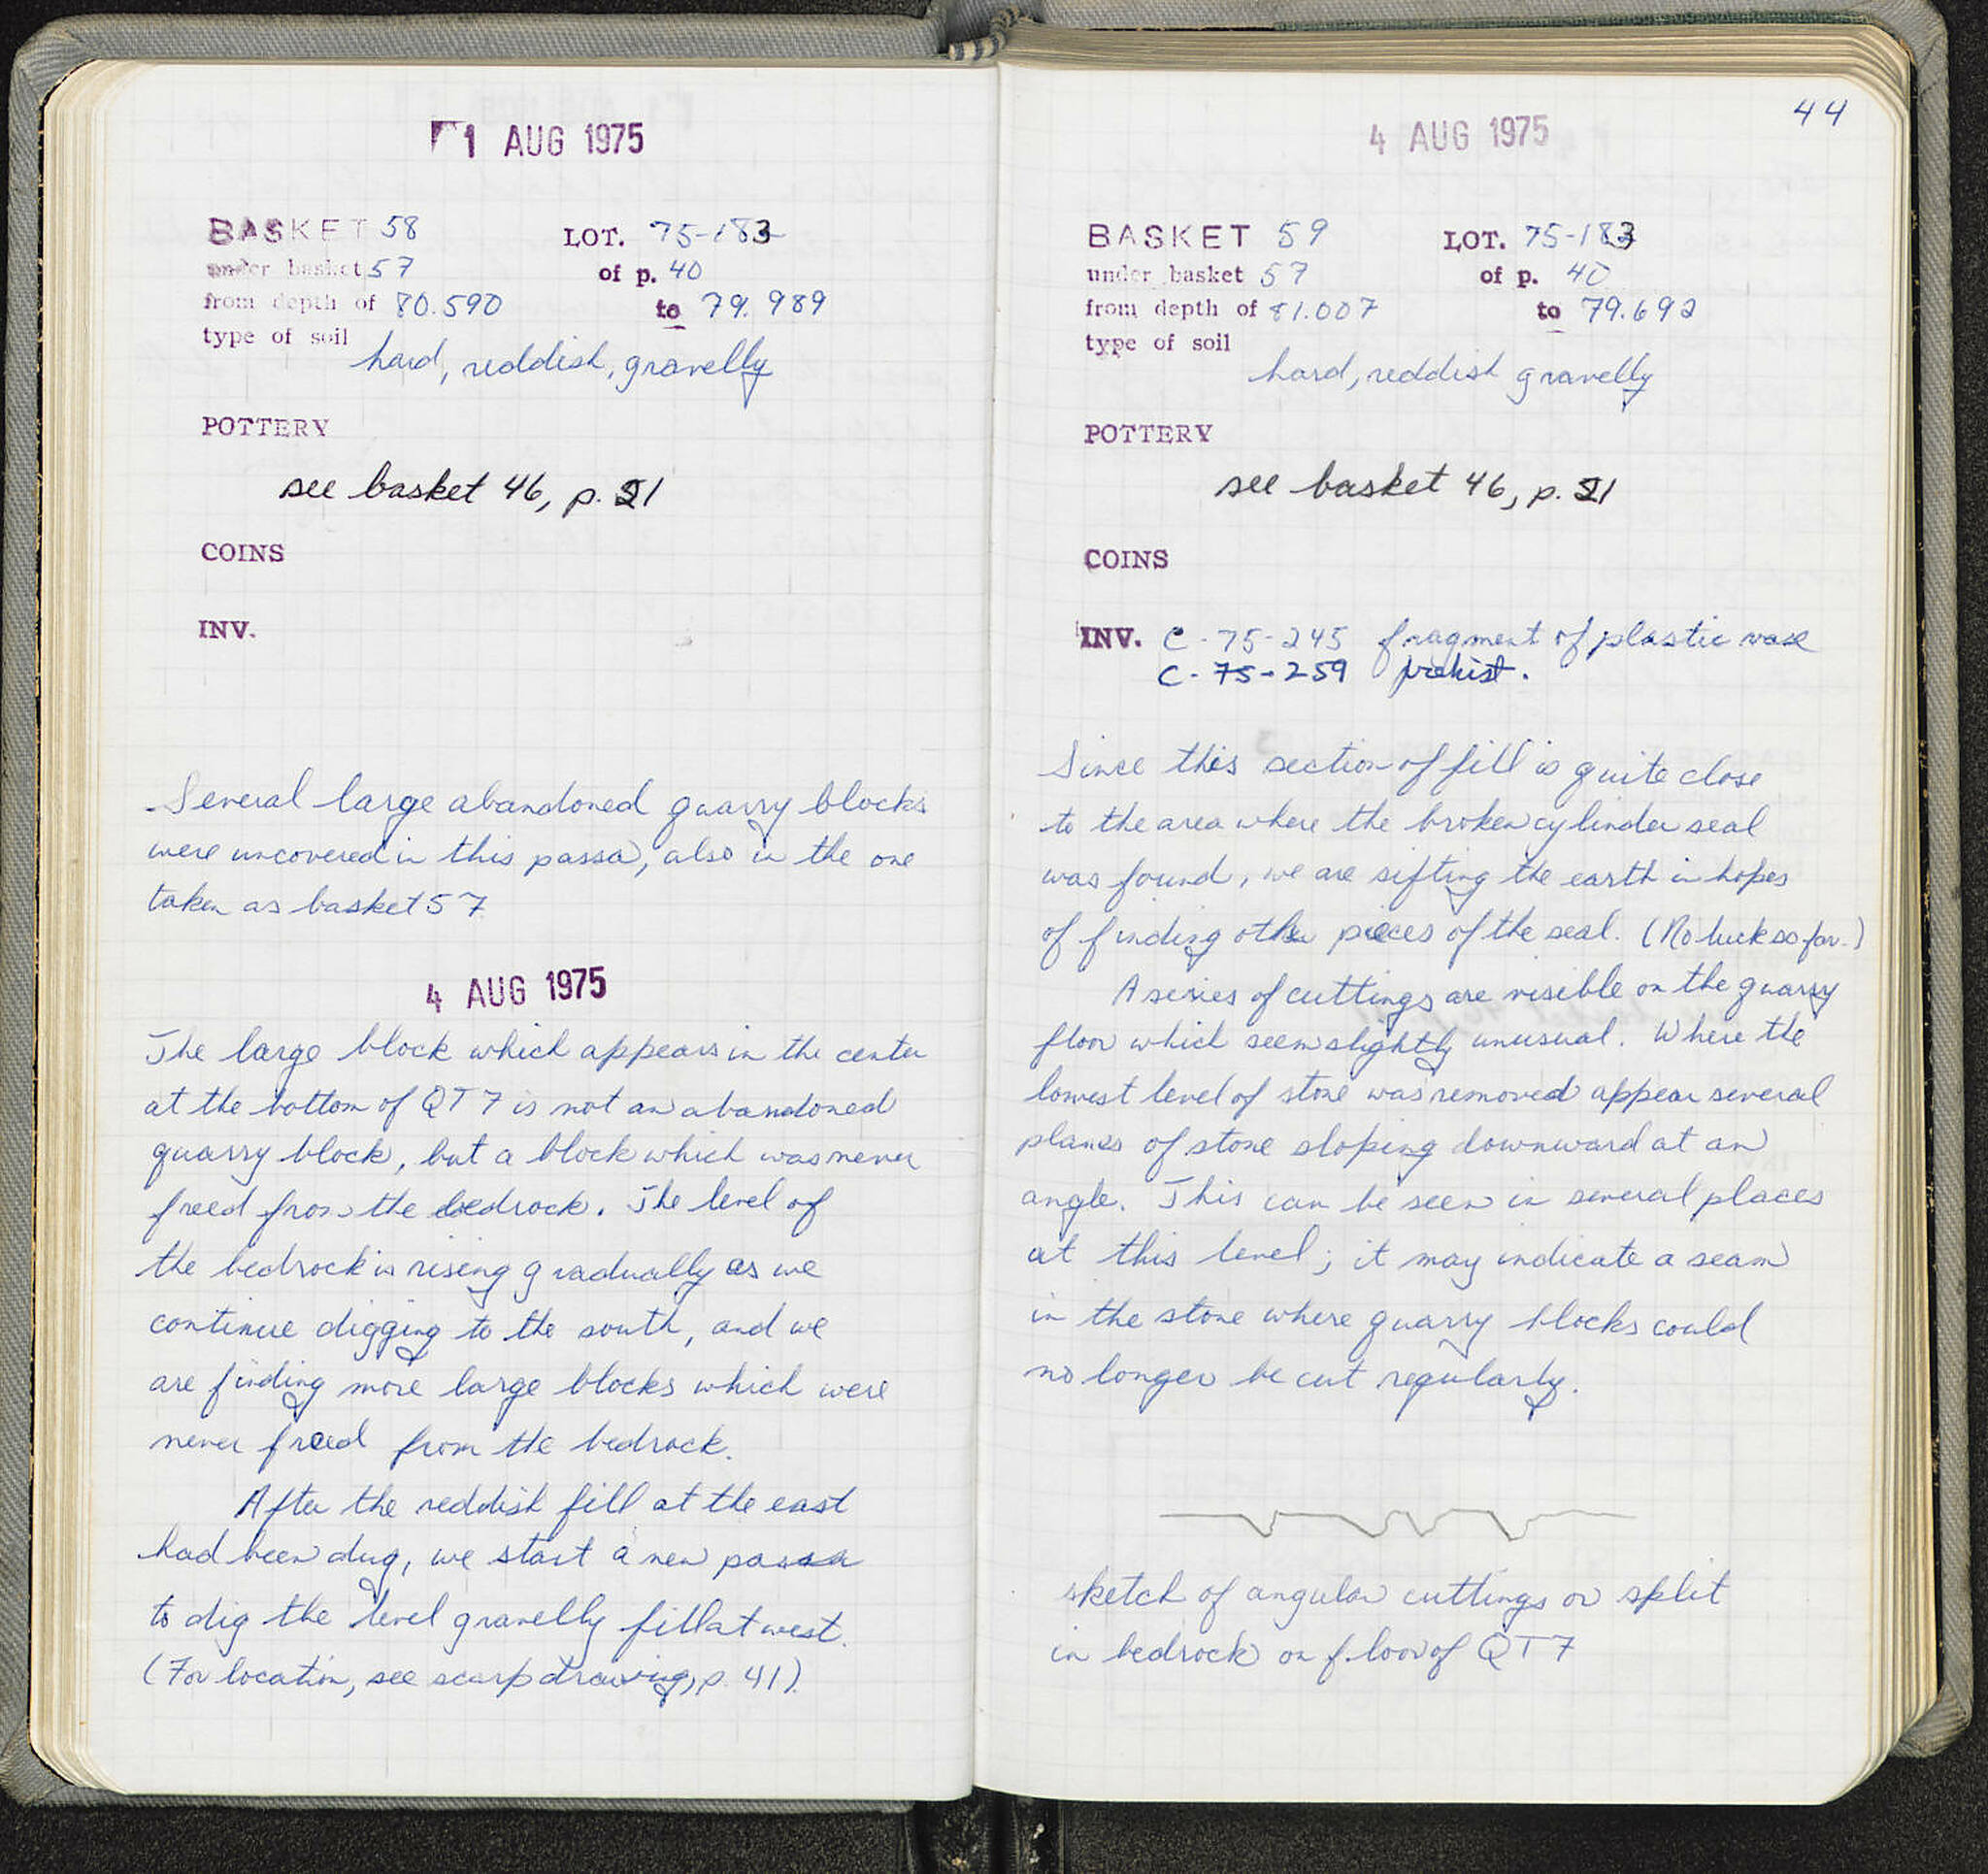 1 AUG 1975
BASKET 58 LOT. 75-183
under basket 57 of p. 40
from depth of 80.590 to 79.989
type of soil
hard, reddish, gravelly
POTTERY
see basket 46, p. 21
COINS
INV.
Several large abandoned quarry blocks
were uncovered in this passa, also in the one
taken as basket 57
4 AUG 1975
The large block which appears in the center
at the bottom of QT7 is not an abandoned
quarry block, but a block which was never
freed from the bedrock. The level of
the bedrock is rising gradually as we
continue digging to the south, and we
are finding more large blocks which were
never freed from the bedrock.
After the reddish fill at the east
had been dug, we start a new passa
to dig the level gravelly fill at west.
(For location, see scarp drawing, p. 41).
44
4 AUG 1975
BASKET 59 LOT. 75-183
under basket 57 of p. 40
from depth of 81.007 to 79.692
type of soil
hard, reddish gravelly
POTTERY
see basket 46, p. 21
COINS
INV. C-75-245 fragment of plastic vase
C-75-259 prehist.
Since this section of fill is quite close
to the area where the broken cylinder seal
was found, we are sifting the earth in hopes
of finding other pieces of the seal. (No luck so far.)
A series of cuttings are visible on the quarry
floor which seem slightly unusual. Where the
lowest level of stone was removed appear several
planes of stone sloping downward at an
angle. This can be seen in several places
at this level; it may indicate a seam
in the stone where quarry blocks could
no longer be cut regularly.
sketch of angular cuttings or split
in bedrock on floor of QT7